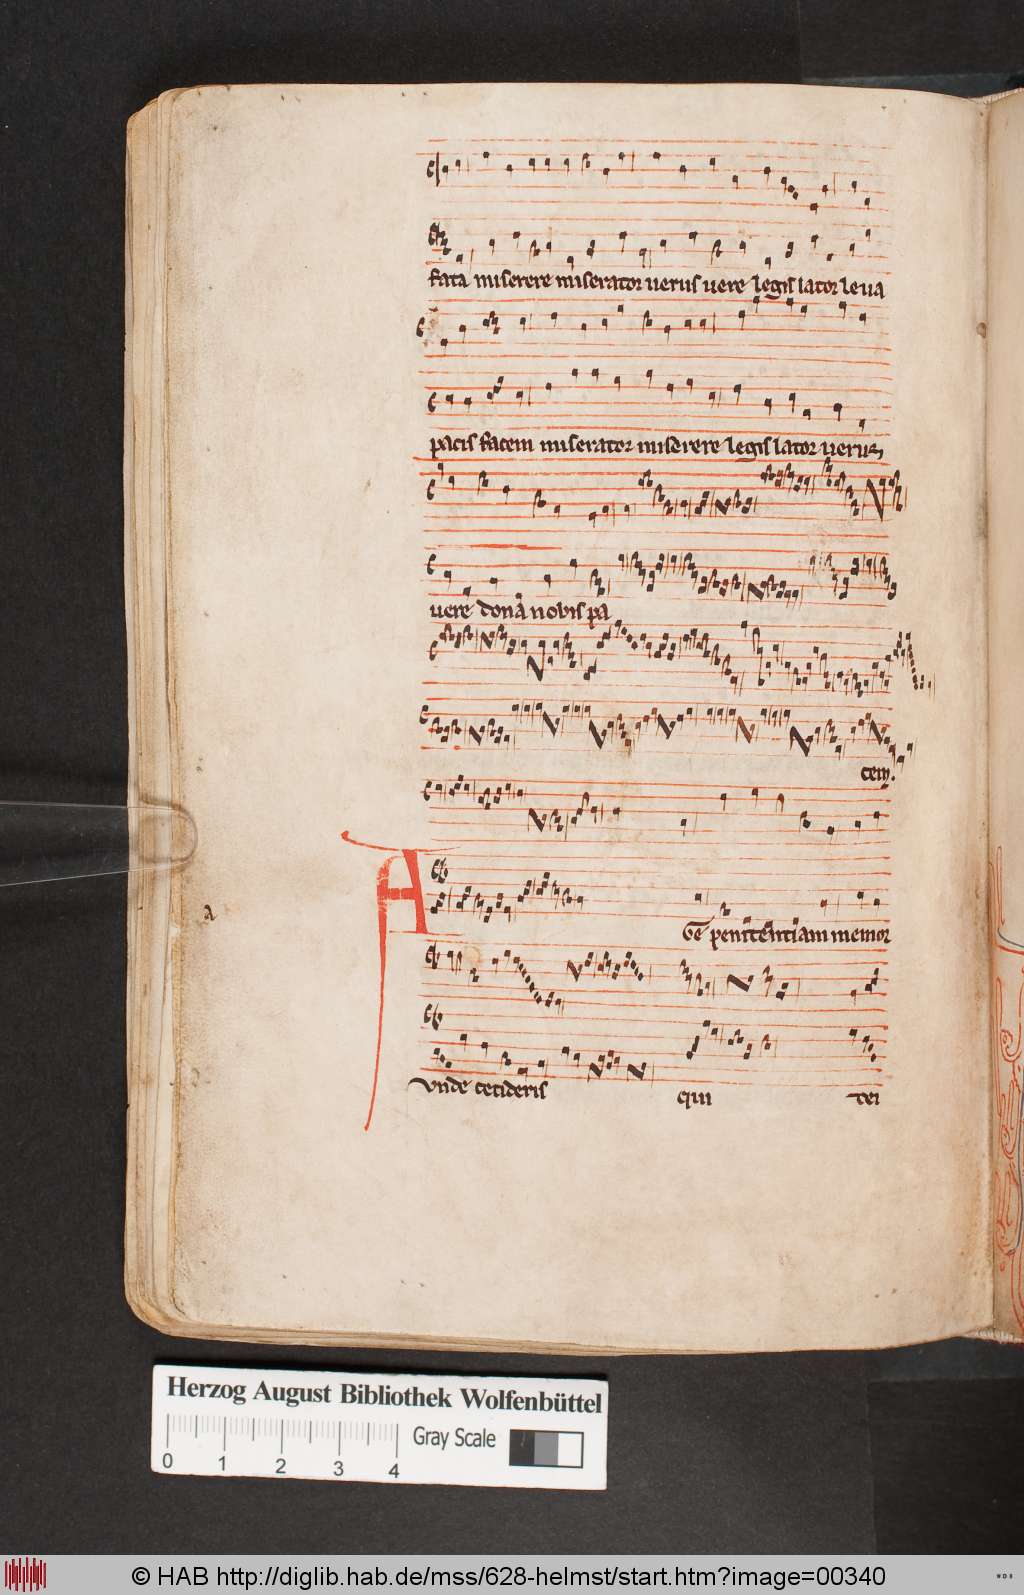 fata miserere miserator verus vere legis lator leva
pacis facem miserator miserere legis lator verus
vere dona nobis pa
cem.
a
A
Ge penitentiam memor
vnde cecideris qui cei
Herzog August Bibliothek Wolfenbüttel
0 1 2 3 4
Gray Scale
© HAB http://diglib.hab.de/mss/628-helmst/start.htm?image=00340
WDB